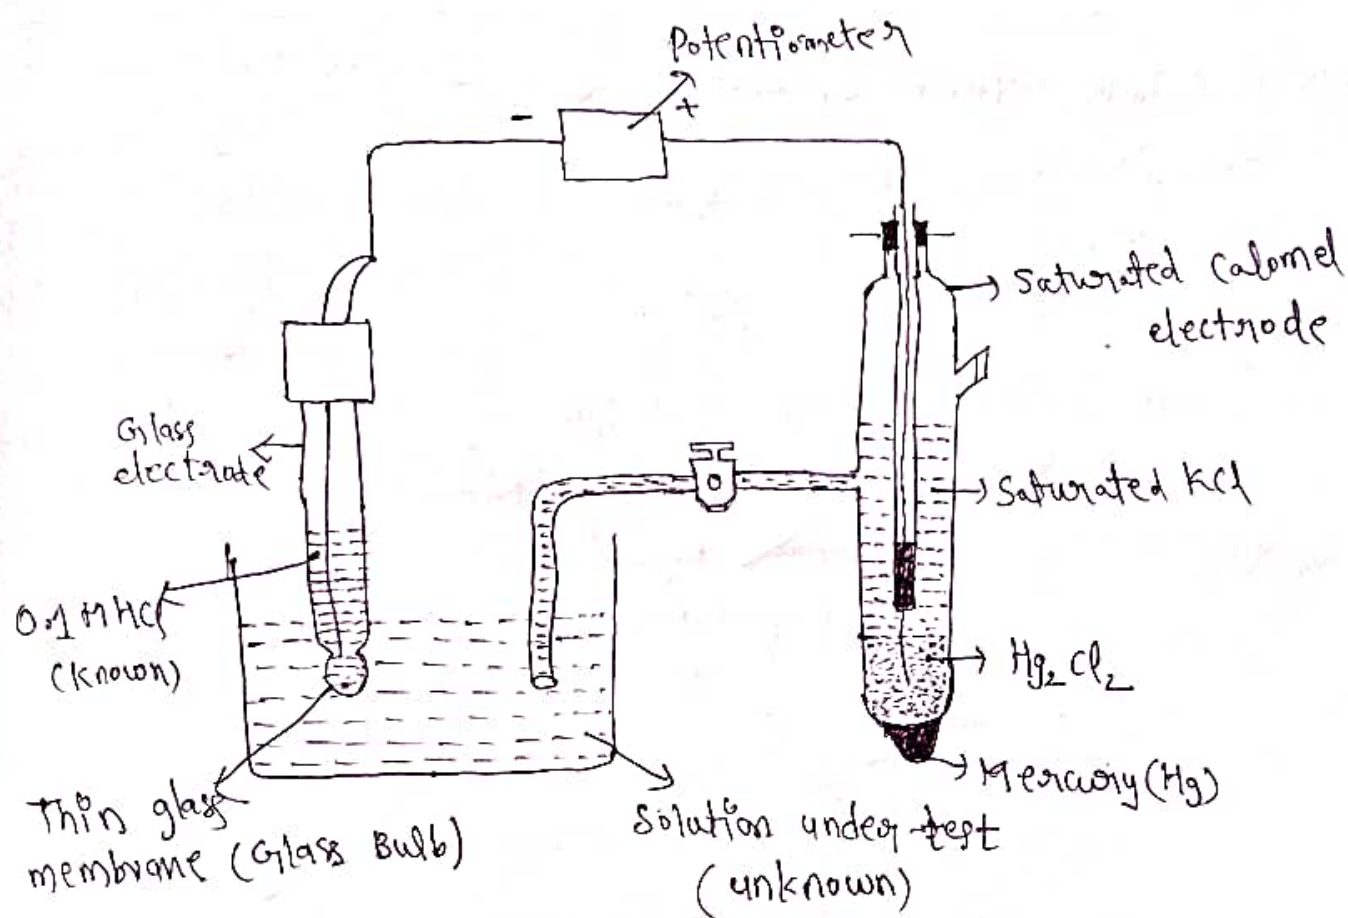 Potentiometer
- +
Saturated Calomel
electrode
Glass
electrate
Saturated KCl
0.1 M HCl
(Known)
Hg2Cl2
Mercury (Hg)
Thin glass
membrane (Glass Bulb)
Solution under test
(unknown)